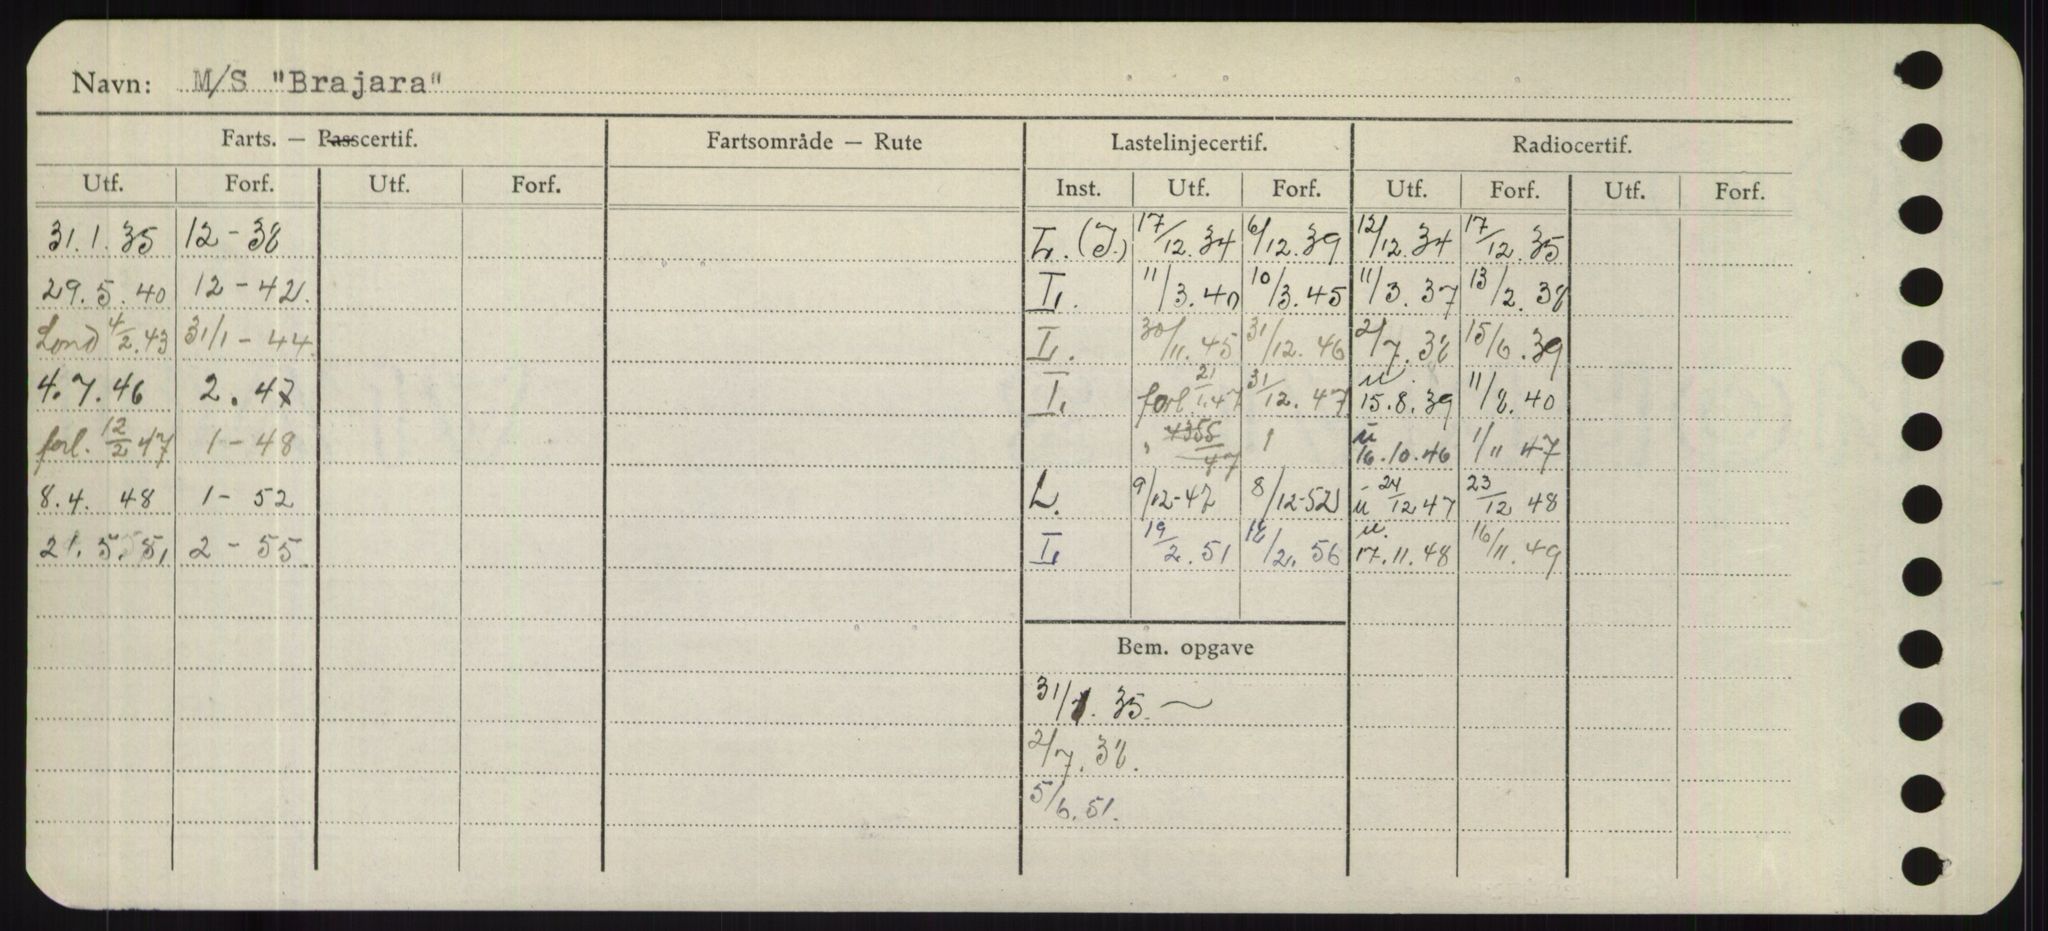 Navn: M/S "Brajara"
Farts. — Passcertif. Fartsområde — Rute Lastelinjecertif. Radiocertif.
Utf. Forf. Utf. Forf. Inst. Utf. Forf. Utf. Forf. Utf. Forf.
31.1.35 12-38 L.(I.) 17/12.34 6/12.39 12/12.34 17/12.35
29.5.40 12-42. L. 11/3.40 10/3.45 11/3.37 13/2.38
Lond 4/2.43 31/1-44. L. 30/11.45 31/12.46 2/7.38 15/6.39
4.7.46 2.47 L. forl. 21/1.47 31/12.47 u 15.8.39 11/8.40
forl. 12/2 47 1-48 " 47 u 16.10.46 1/11 47
8.4.48 1-52 L. 9/12-47 8/12-52 u 24/12 47 23/12 48
21.5.51, 2-55. L 19/2.51 18/2.56 u. 17.11.48 16/11.49
Bem. opgave
31/1.35.
2/7.38.
5/6.51.